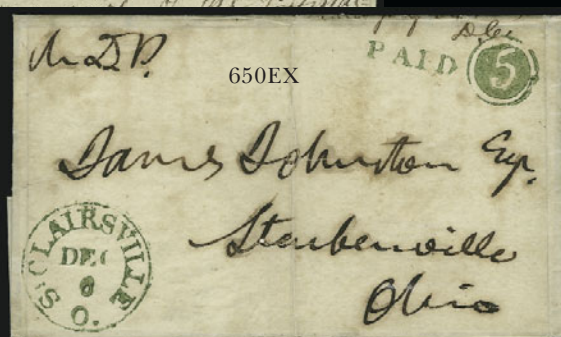 PAID 5
650EX
James Johnston Esqr.
Steubenville
Ohio
St CLAIRSVILLE O.
DEC
8